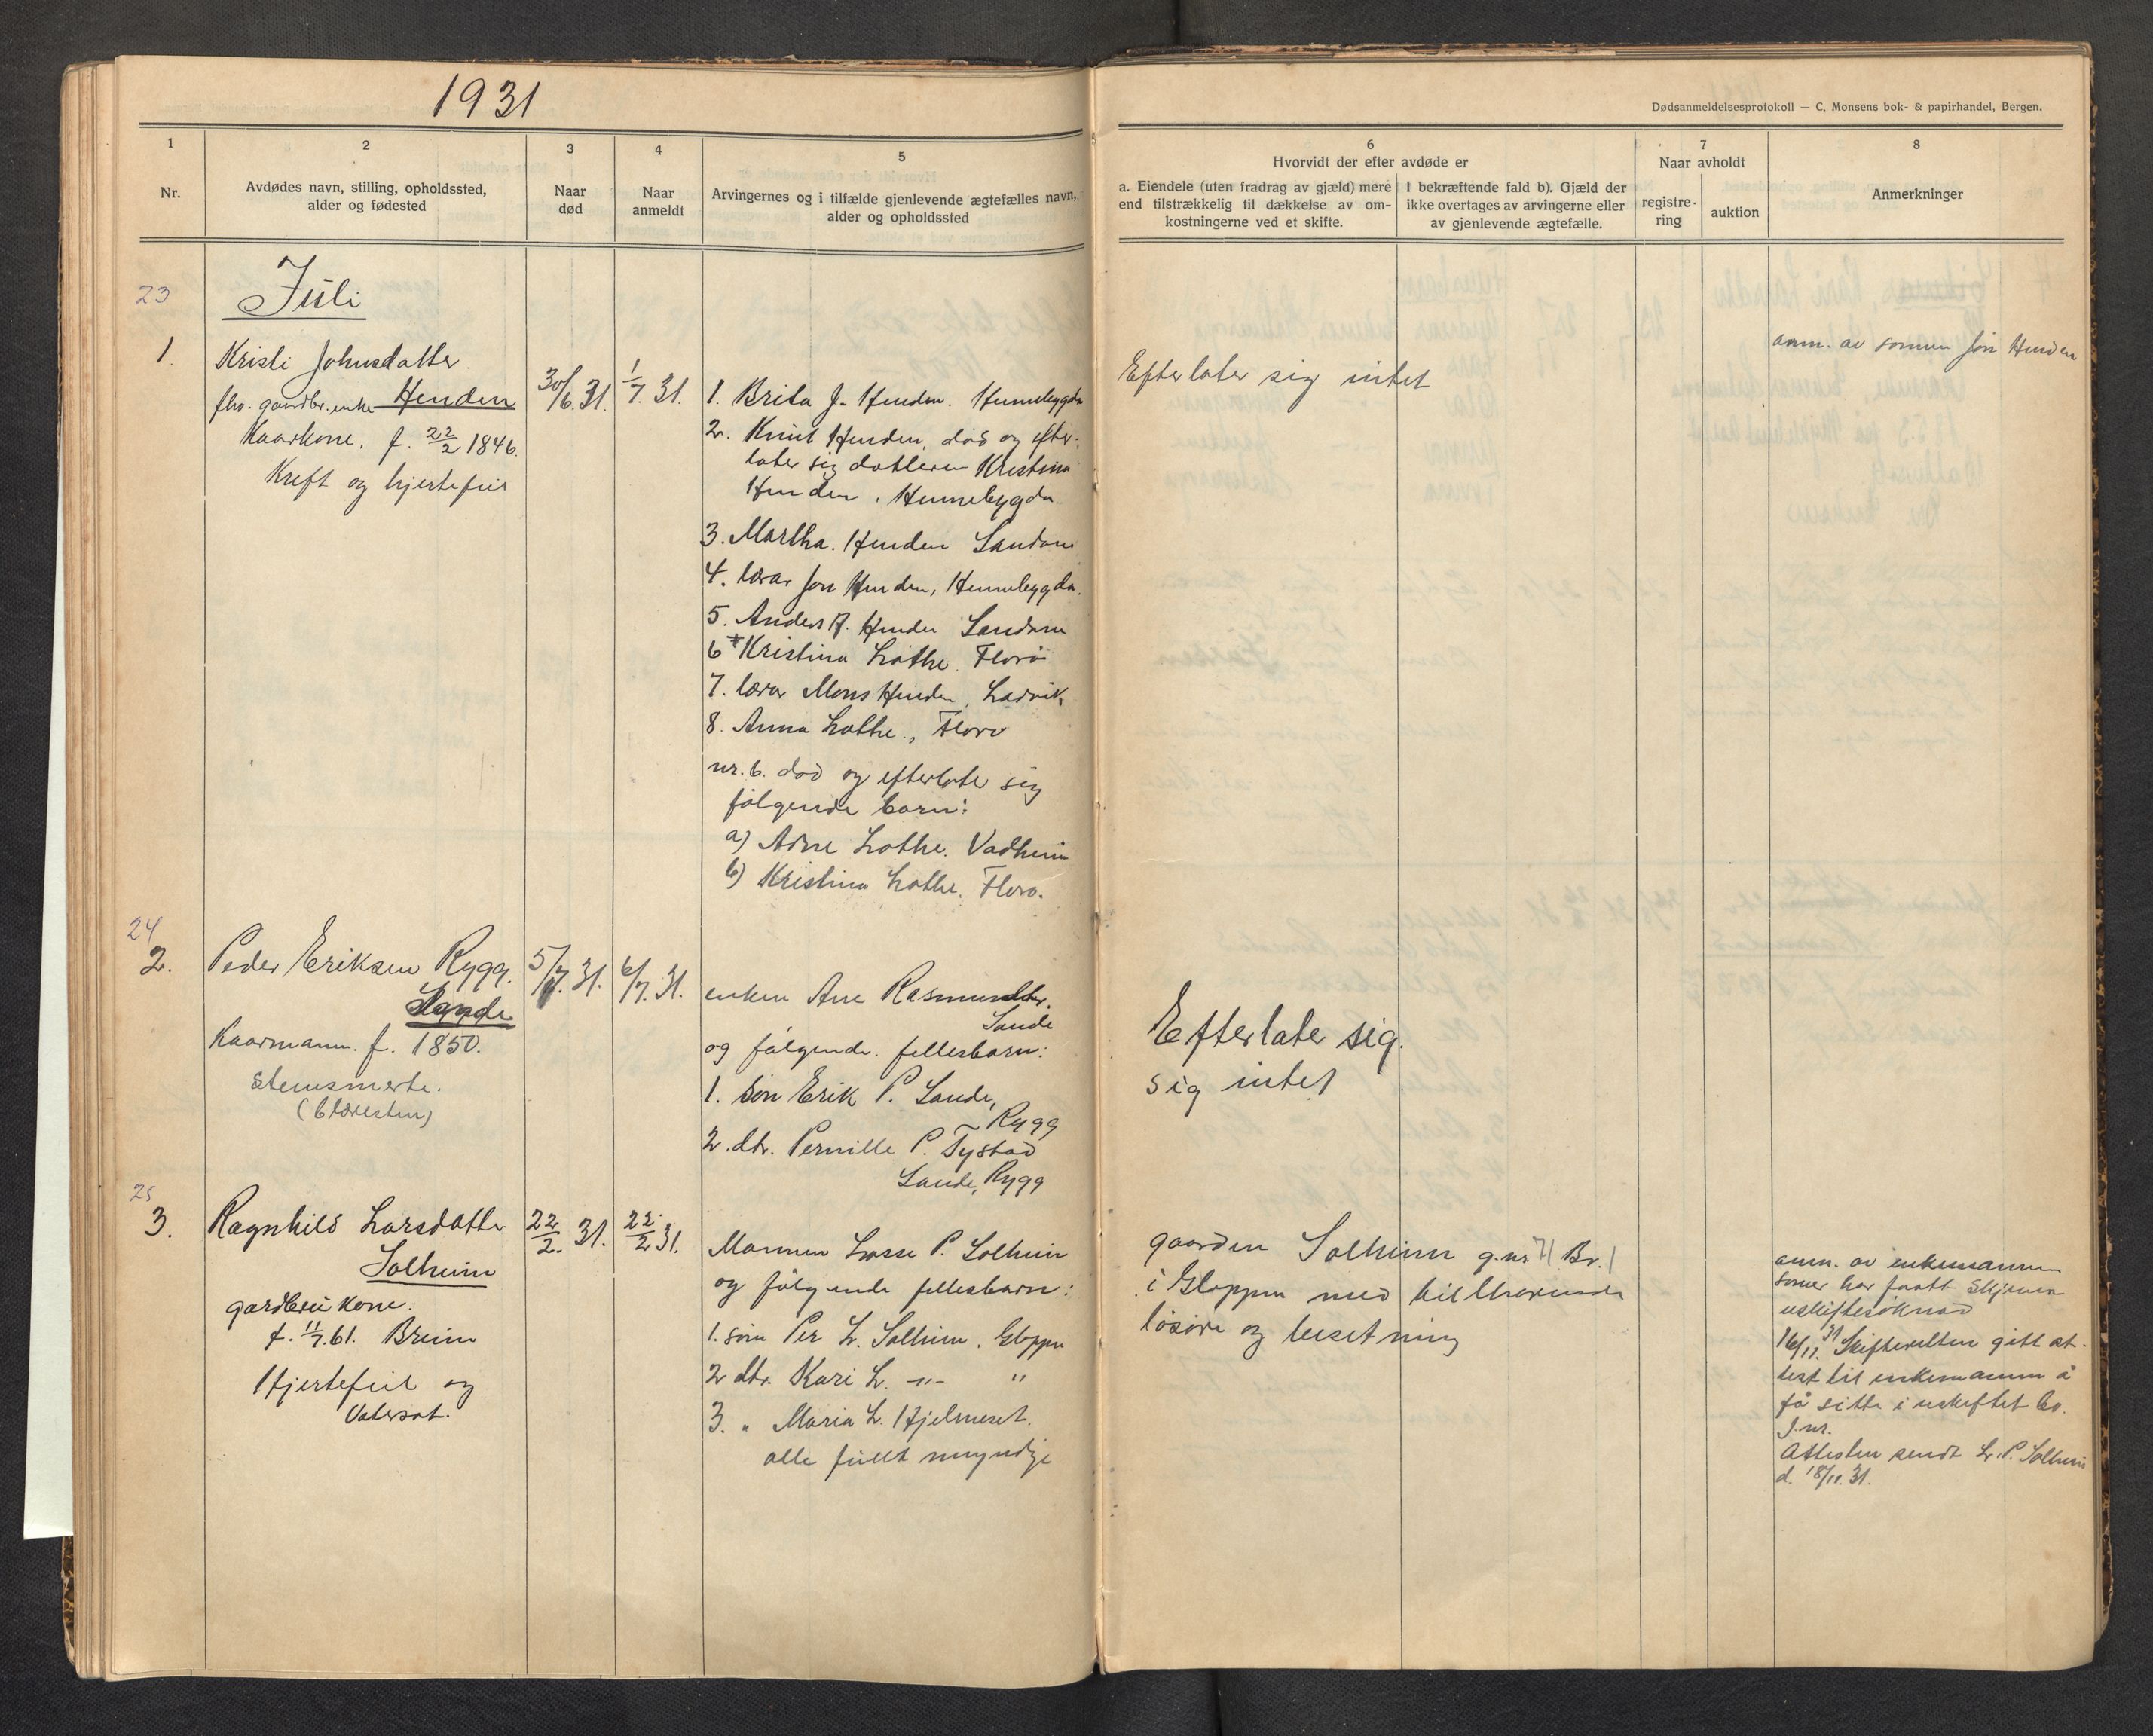 1931
Dødsanmeldelsesprotokoll — C. Monsens bok- & papirhandel, Bergen.
1
Nr.
2
Avdødes navn, stilling, opholdssted,
alder og fødested
3
Naar
død
4
Naar
anmeldt
5
Arvingernes og i tilfælde gjenlevende ægtefælles navn,
alder og opholdssted
6
Hvorvidt der efter avdøde er
a. Eiendele (uten fradrag av gjæld) mere
end tilstrækkelig til dækkelse av om-
kostningerne ved et skifte.
I bekræftende fald b). Gjæld der
ikke overtages av arvingerne eller
av gjenlevende ægtefælle.
7
Naar avholdt
registre-
ring
auktion
8
Anmerkninger
23
Juli
1.
Kristi Johnsdatter
fhv. gaardbr. enke Henden
Kaarkone. f. 22/2 1846.
Kreft og hjertefeil
30/6.31.
1/7.31.
1. Brita J. Henden. Hennebygda
2. Knut Henden, død og efter-
later sig datteren Kristina
Henden. Hennebygda
3. Martha. Henden Sandane
4. lærar Jon Henden, Hennebygda.
5. Anders A. Henden Sandane
6+ Kristina Lothe. Florø
7. lærar Mons Henden, Ladvik
8. Anna Lothe., Florø
nr. 6. død og efterlate sig
følgende barn:
a) Arne Lothe. Vadheim
b) Kristina Lothe. Florø.
Efterlater sig intet
anm. av sønnen Jon Henden
24
2.
Peder Eriksen Rygg.
Sande
Kaarmann. f. 1850.
Stensmerte.
(blæresten)
5/7.31.
6/7.31.
enken Ane Rasmusdtr.
Sande
og følgende. fellesbarn:
1. søn Erik P. Sande,
Rygg
2. dtr. Pernille P. Tystad
Sande, Rygg
Efterlater sig.
sig intet
25
3.
Ragnhild Larsdatter
Solheim
gardbrukone.
f. 11/7.61. Breim
Hjertefeil og
Vatersot.
22/2. 31.
22/2 31.
Mannen Lasse P. Solheim
og følgende fellesbarn:
1. søn Per L. Solheim. Gloppen
2 dtr. Kari L. -"- "
3. " Maria L. Hjelmeset.
alle fullt myndige
gaarden Solheim g.nr. 71 Br. 1
i Gloppen med tilhørende
løsøre og besetning
anm. av enkemannen
somer har faatt Skjema
uskiftesøknad
16/11. 31 Skifteretten gitt at-
test til enkemannen å
få sitte i uskiftet bo.
J.nr.
Attesten sendt L. P. Solheim
d. 18/11.31.